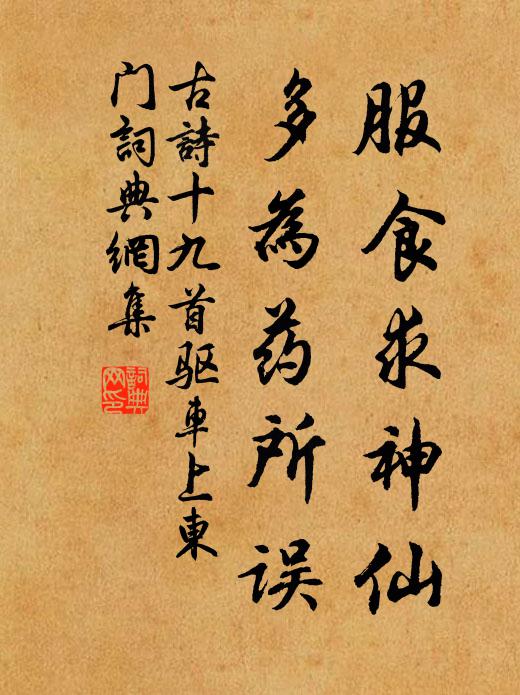 服食求神仙
多為药所误
古詩十九首驱車上東
门詞典網集
詞典
网印